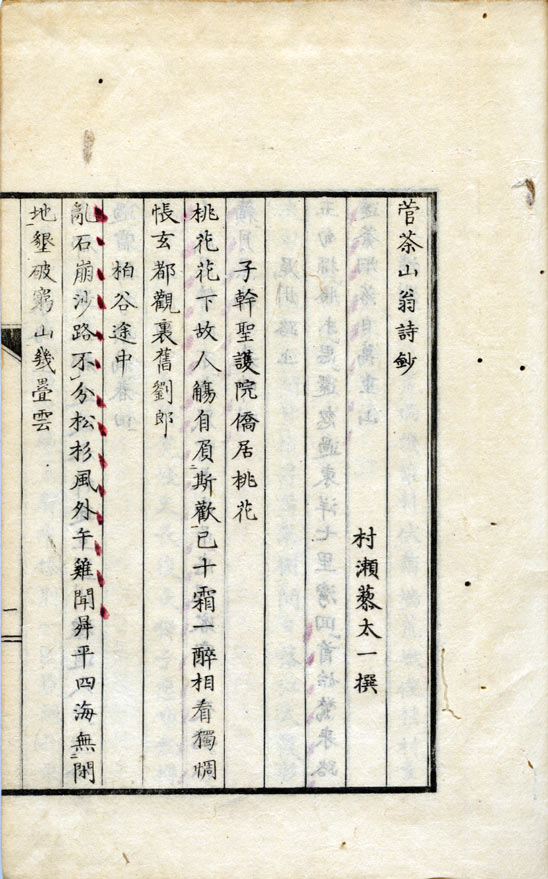 菅茶山翁詩鈔
村瀬藜太一撰
子幹聖護院僑居桃花
桃花花下故人觴自負斯歡已十霜一醉相看獨惆
悵玄都觀裏舊劉郎
柏谷途中
亂石崩沙路不分松杉風外午雞聞昇平四海無閑
地墾破窮山幾疊雲
一